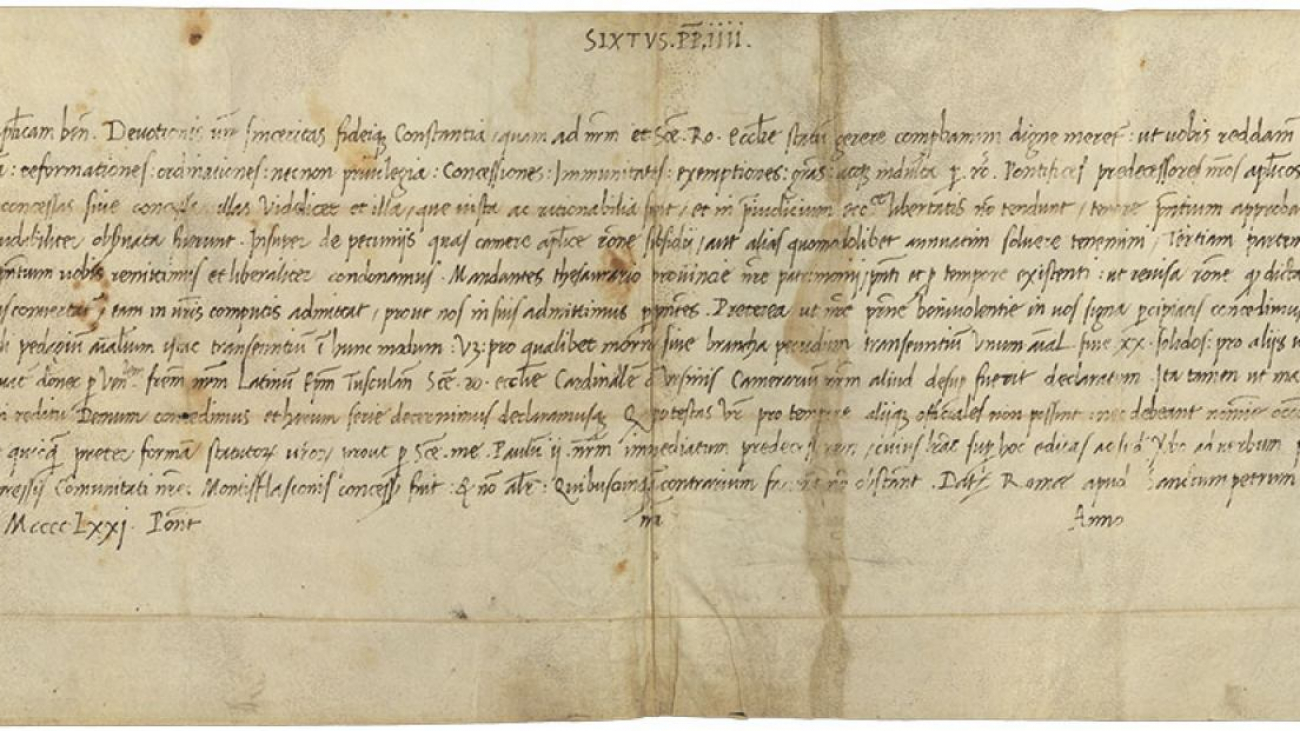 SIXTVS.PP.IIII.
aplicam ben. Devotionis vre sinceritas fideiq Constantia quam ad nrm et Sce. Ro. ecclie statum gerere comprobamini digne meret : ut uobis reddam
: reformationes : ordinationes : necnon privilegia : Concessiones : Immunitates : exemptiones : gras : atq indulta p. ro. Pontifices predecessores nros aplicos
concessas sive concessa illas Videlicet et illa, que iusta ac rationabilia sint, et in preiudicium ecc libertatis no tendunt, tenore pntium approba
observata fuerunt. Insuper de pecunijs quas camere aplice rone subsidij, aut alias quomodolibet annuatim solvere tenemini, Tertiam partem
pntium uobis remittimus et liberaliter condonamus. Mandantes thesaurario provincie nre patrimonij pnti et p tempore existenti : ut revisa rone
convertat, eam in vris computis admittat, prout nos in suis admittimus p pntes. Preterea ut nre prne benivolentie in vos signa percipiatis concedimus
pedagium aialium istac transeuntiu i hunc modum : Vz : pro qualibet morra sive brancha pecudium transeuntiu Vnum aial sive XX. solidos : pro alijs
donec p Ven. frem nrm Latinu Epm Tusculan Sce. ro. ecclie Cardinale d Vrsinis Camerariu nrm aliud desup fuerit declaratum. Ita tamen ut
reditu. Demum concedimus et harum serie decernimus declaramusq Q potestas Vr pro tempore alijq officiales non possint nec debeant nomie
quicq preter forma statutor vror, prout p Sce. me. Paulu ij. nrm immediatum predecessorem, cuius lras sup hoc editas ac si d Vbo ad verbum
Comunitati nre Montisflasconis concessu fuit : & no alr : Quibuscunq contrarium facientib no obstant. Dat Romae apud Sanctum petrum
Mcccc Lxxi. Pont nri Anno